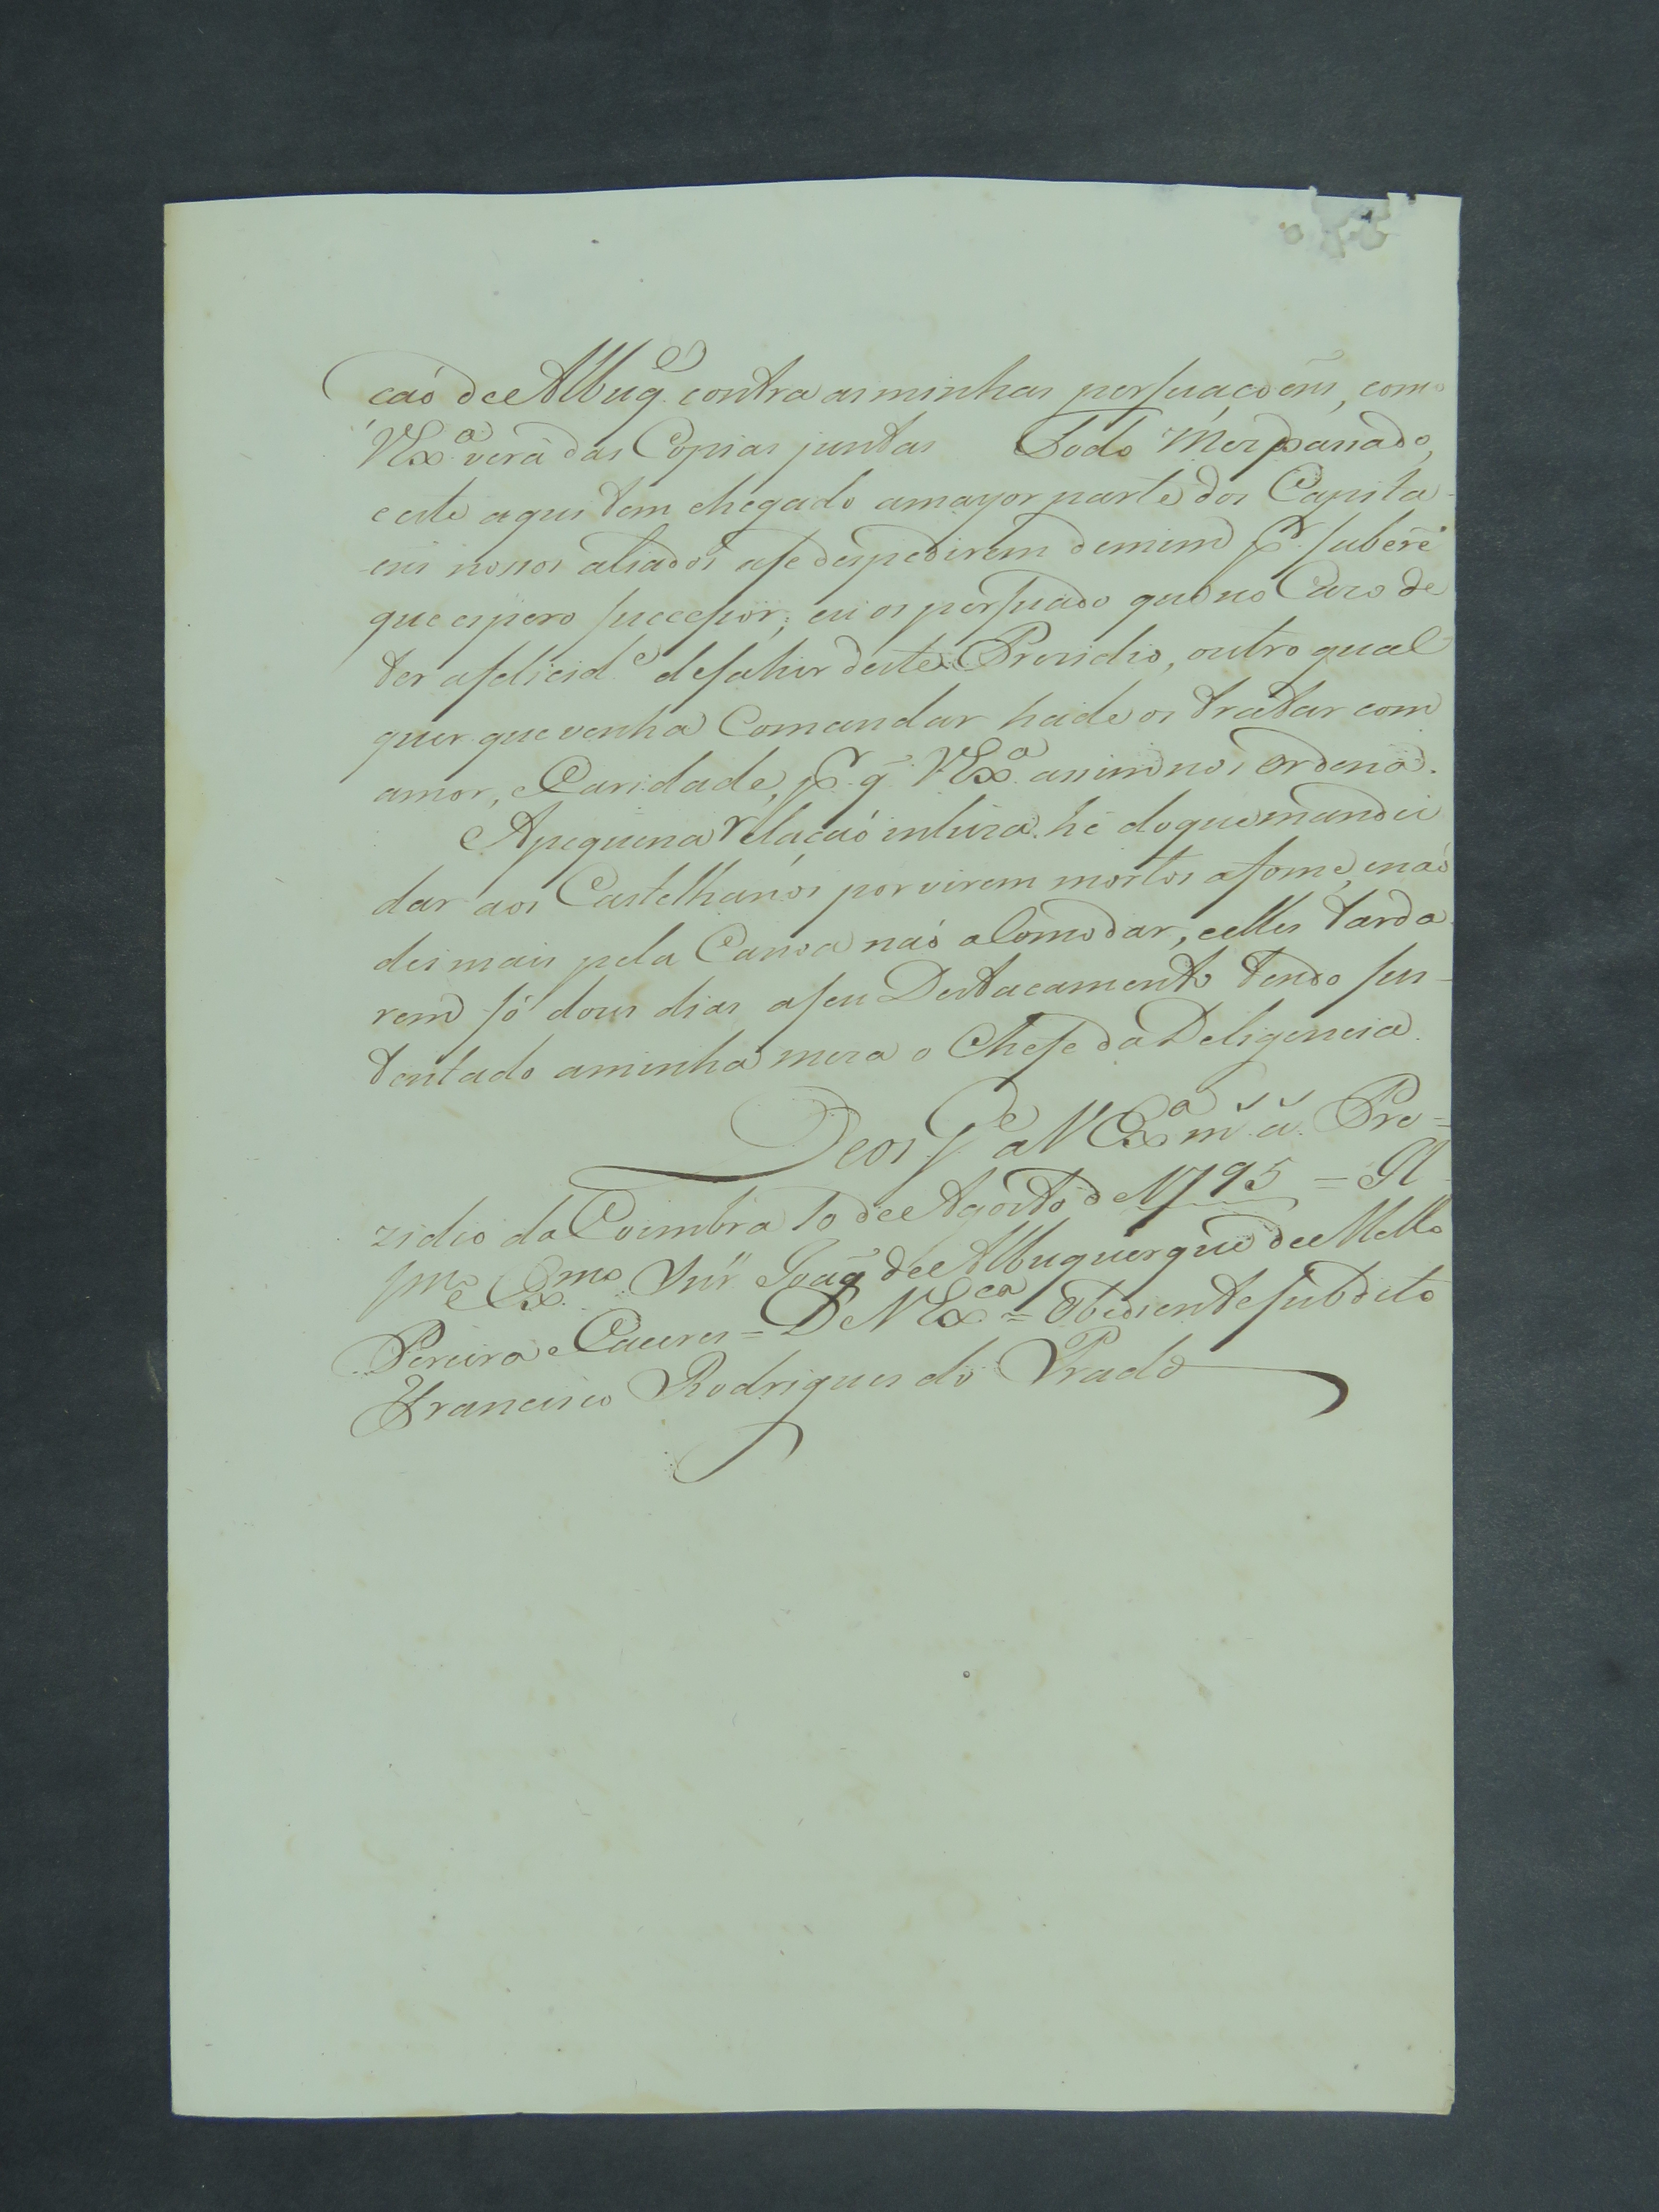 caó de Albuqe contra as minhas persuaçoens, como
VExa verá das Copias juntas Todo Mez passado,
e este aqui tem chegado a mayor parte dos Capita-
ens nossos aliados a se despedirem de mim pr saberē
que espero successor; eu os persuado que no Cazo de
ter a felicide de sahir deste Prezidio, outro qual-
quer que venha Comandar hade os tratar com
amor, e Caridade, pr q̃ VExa assim nos ordena.
A pequena relaçaó incluza hé do que mandei
dar aos Castelhanos por virem mortos a fome, e naó
dei mais pela Canoa naó acomodar, e elles tarda-
rem só dous dias a seu Destacamento tendo sus-
tentado a minha meza o Chefe da Deligencia.
Deos ge a VExa m. a. Pre=
zidio da Coimbra 10 de Agosto de 1795 = Il-
mo e Exmo Snr̃ Joaõ de Albuquerque de Mello
Pereira e Caceres = De VExca = Obediente subdito
Francisco Rodrigues do Prado